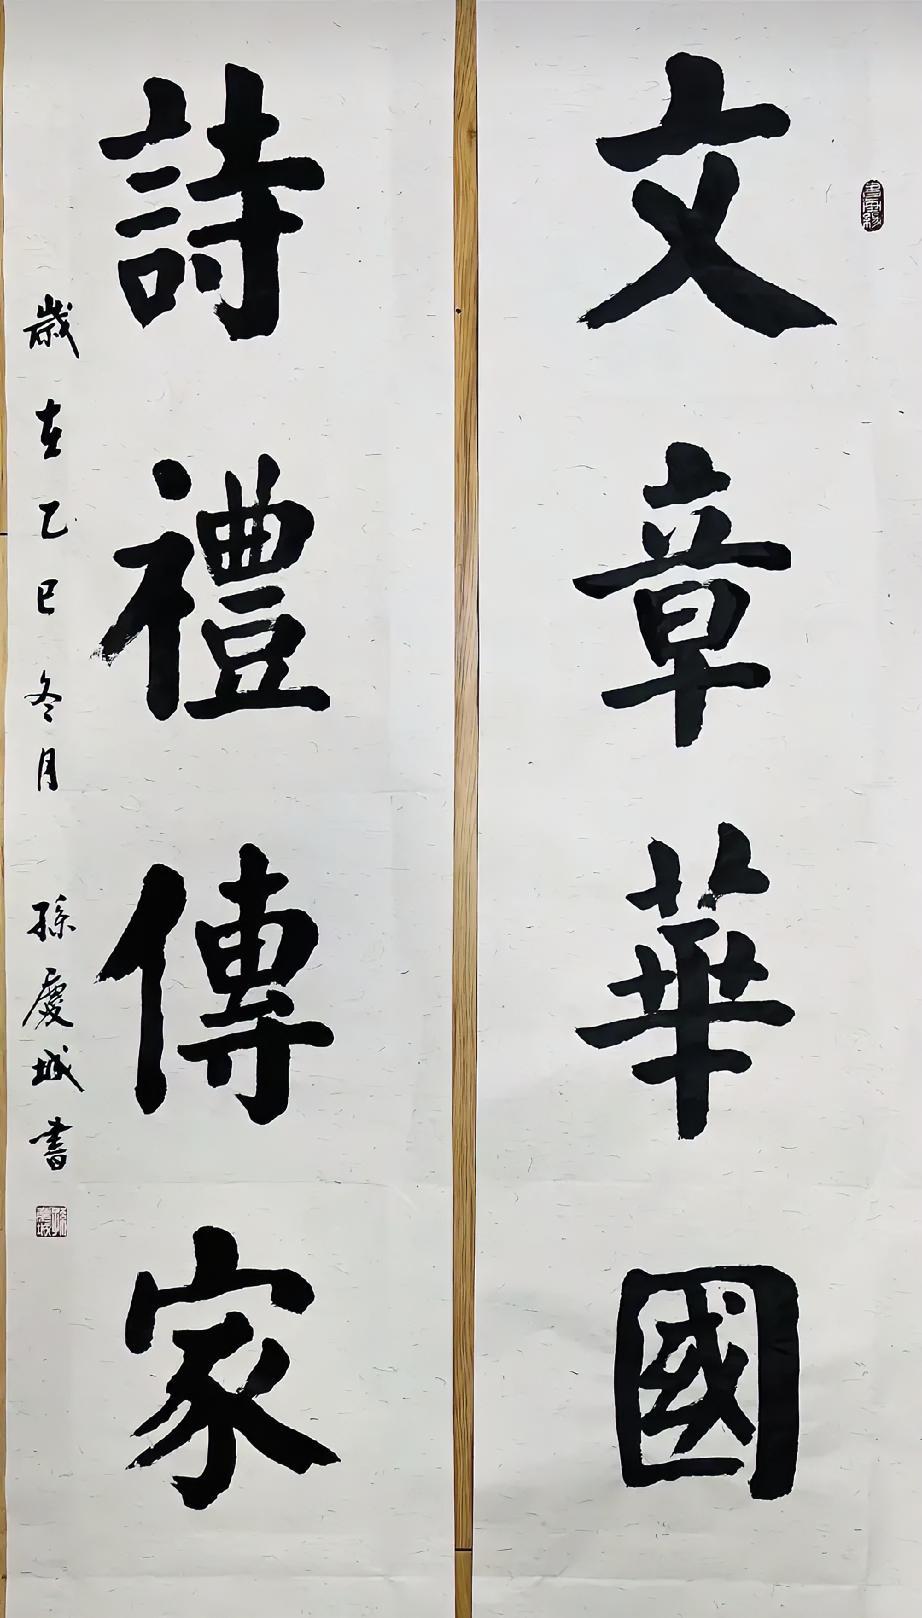 文章華國
詩禮傳家
歲在乙巳冬月 孫慶城書